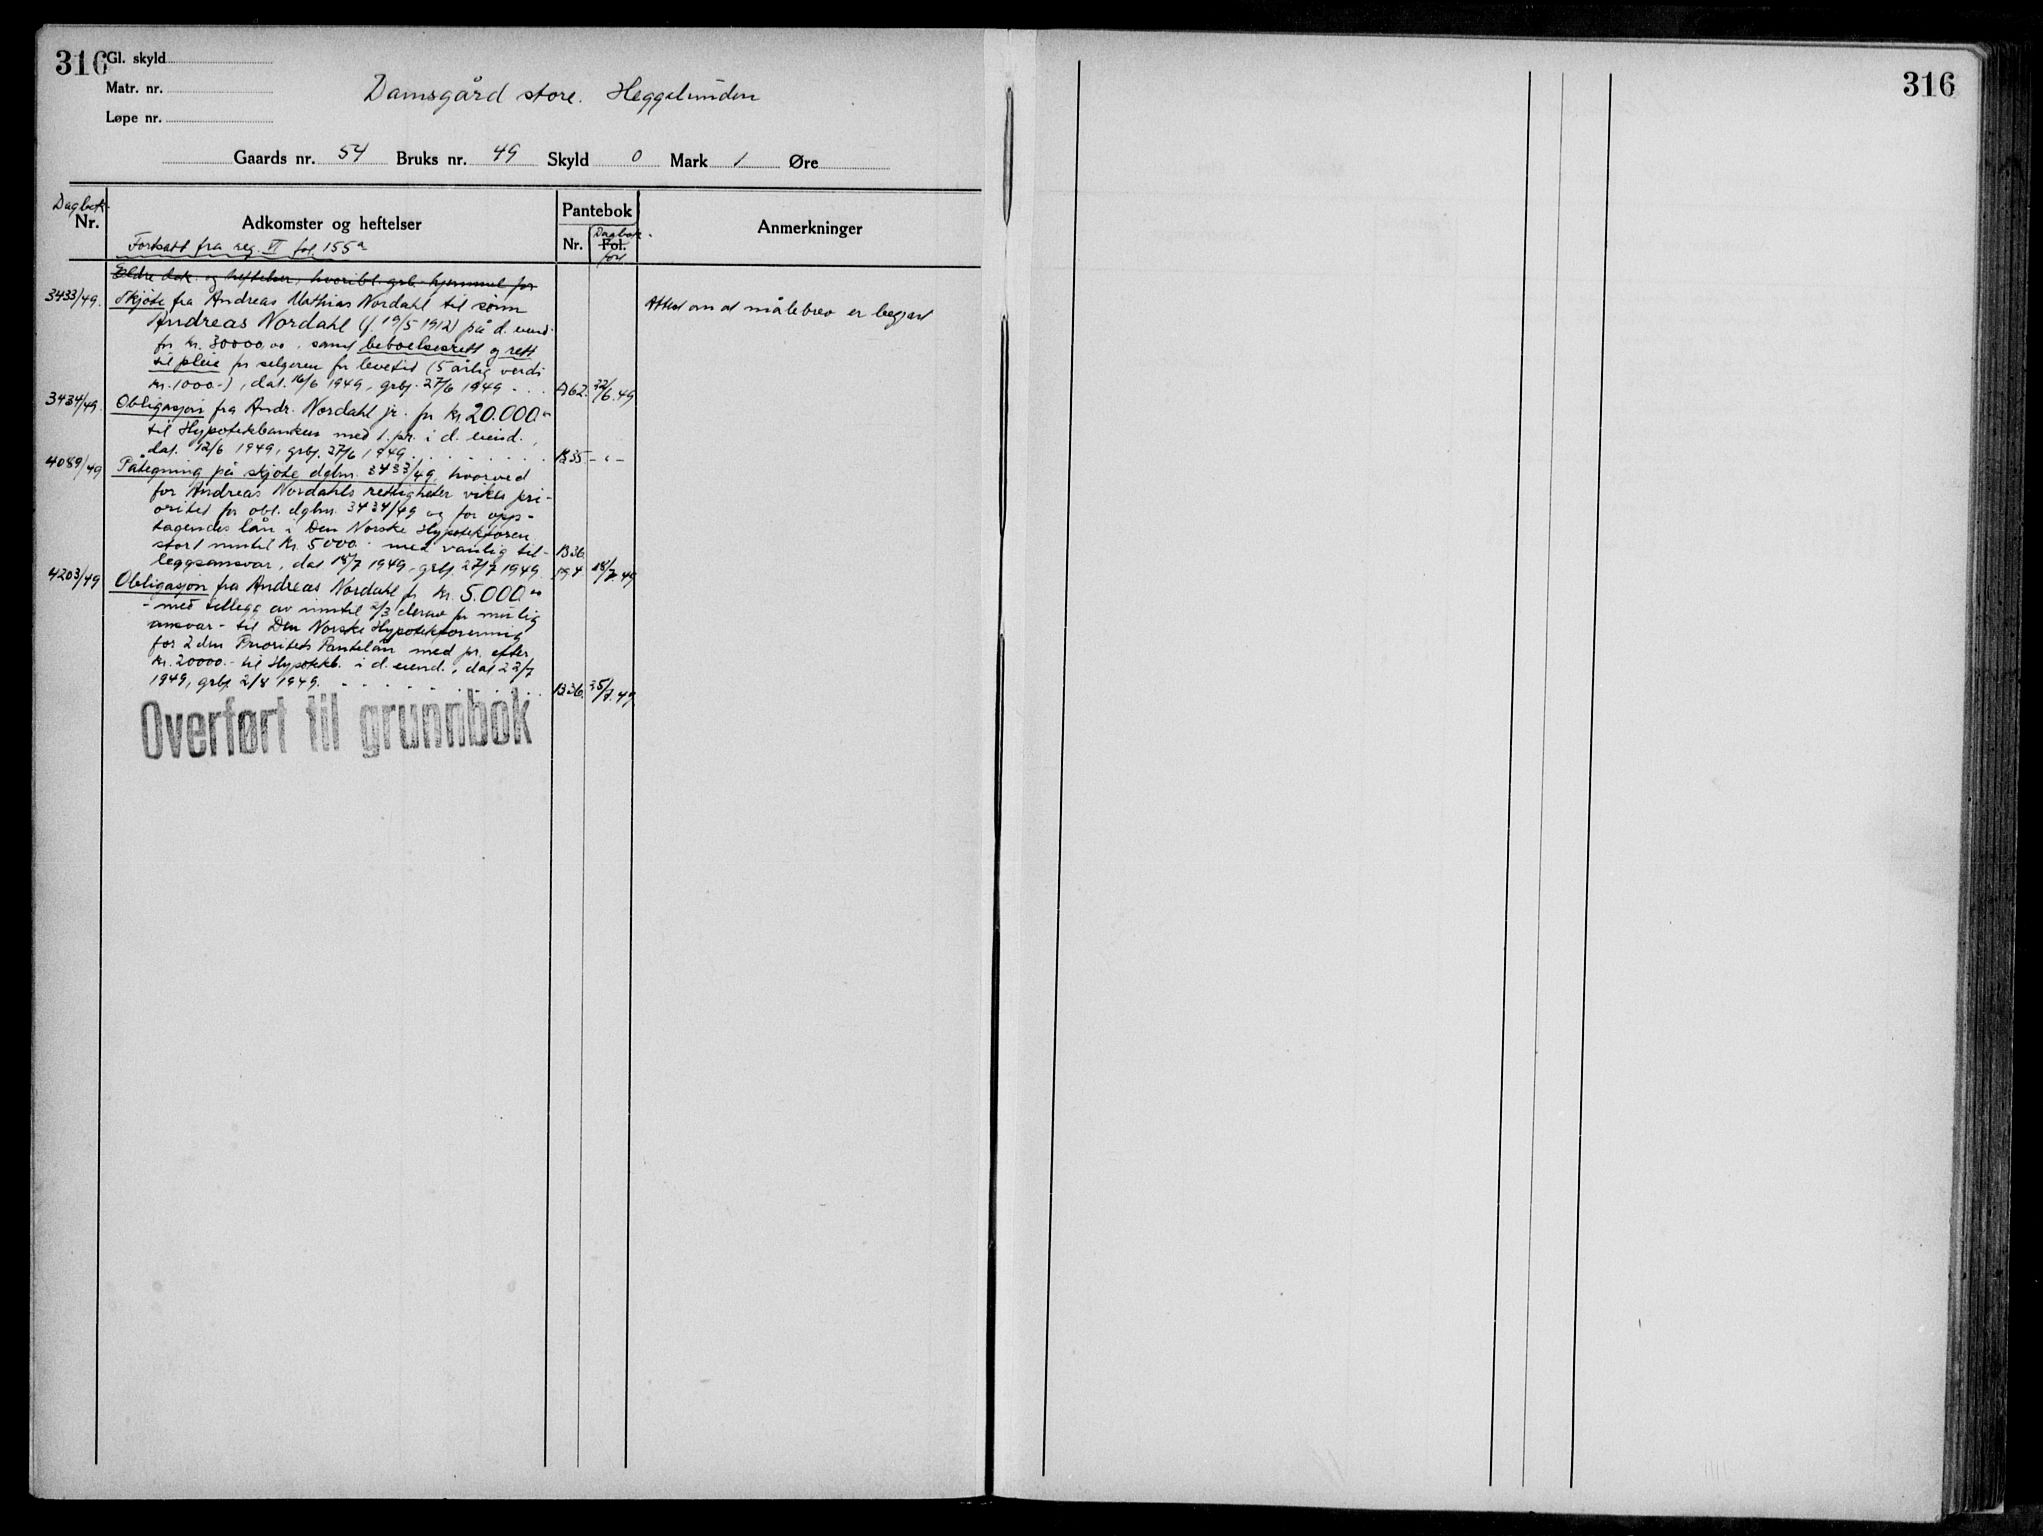 316 Gl. skyld
Matr. nr.
Løpe nr.
Damsgård store. Heggelunden
Gaards nr. 54 Bruks nr. 49 Skyld 0 Mark 1 Øre
Dagbok
Nr.
Adkomster og heftelser
Pantebok
Nr.
Dagbok-
Fol.
ført
Anmerkninger
Fortsatt fra reg. VI fol. 155a
Eldre dok. og heftelser, hvoribl. grb. hjemmel for
3433/49. Skjøte fra Andreas Mathias Nordahl til sønn
Andreas Nordahl (f. 19/5 1912) på d. eiend.
for kr. 30000,00, samt beboelsesrett og rett
til pleie for selgeren for levetid (5 årlig verdi
kr. 1000.-), dat. 16/6 1949, grbf. 27/6 1949 . . . A62. 22/6.49
Attest om at målebrev er begjært
3434/49. Obligasjon fra Andr. Nordahl jr. for kr. 20.000
til Hypotekbanken med 1. pr. i d. eiend.,
dat. 12/6 1949, grbf. 27/6 1949 B35 - " -
4089/49 Påtegning på skjøte dgbnr. 3433/49, hvorved
for Andreas Nordahls rettigheter vikes pri-
oritet for obl. dgbnr. 3434/49 og for opp-
tagendes lån i Den Norske Hypotekforen.
stort inntil kr. 5000.- med vanlig til-
leggsansvar, dat 18/7 1949, grbf. 27/7 1949. B36 194 18/7.49
4203/49 Obligasjon fra Andreas Nordahl for kr. 5.000
- med tillegg av inntil 2/3 derav for mulig
ansvar - til Den Norske Hypotekforening
for 2den Prioritets Pantelån med pr. efter
kr. 20000.- til Hypotekb. i d. eiend., dat 22/7
1949, grbf 2/8 1949. B36. 25/7.49
Overført til grunnbok
316